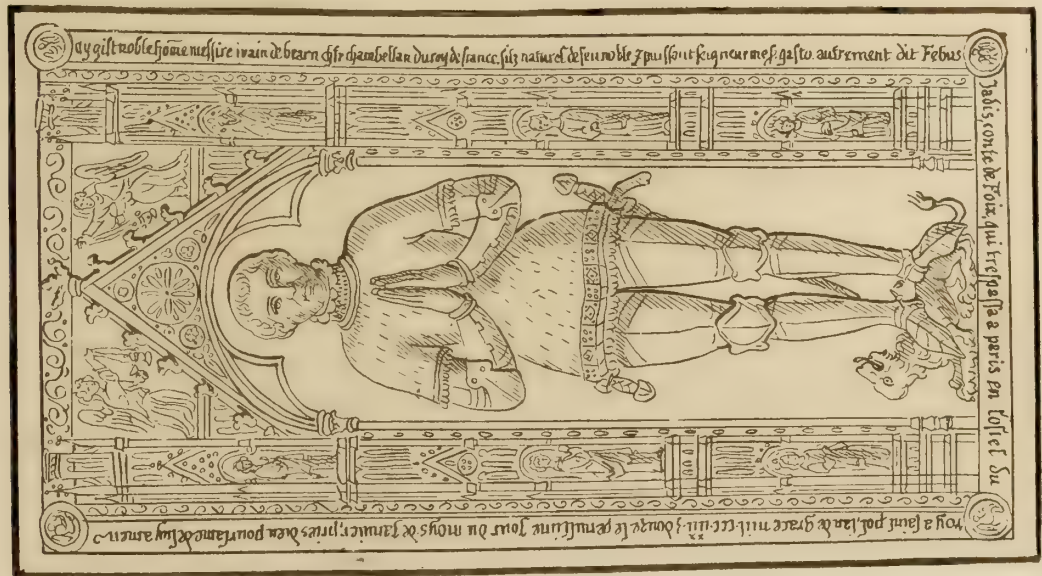 Cy gist noble home messire ivain de bearn chlr chambellan du roy de france. filz naturel de feu noble z puissant seigneur mes: gasto. autrement dit Febus
Jadis, conte de Foix, qui trespassa a paris en lostel du
roy a saint pol, lan de grace mil·ccc·iiii·xx z douze le penultime Jour du moys de Janvier, pries dieu pour lame de luy amen